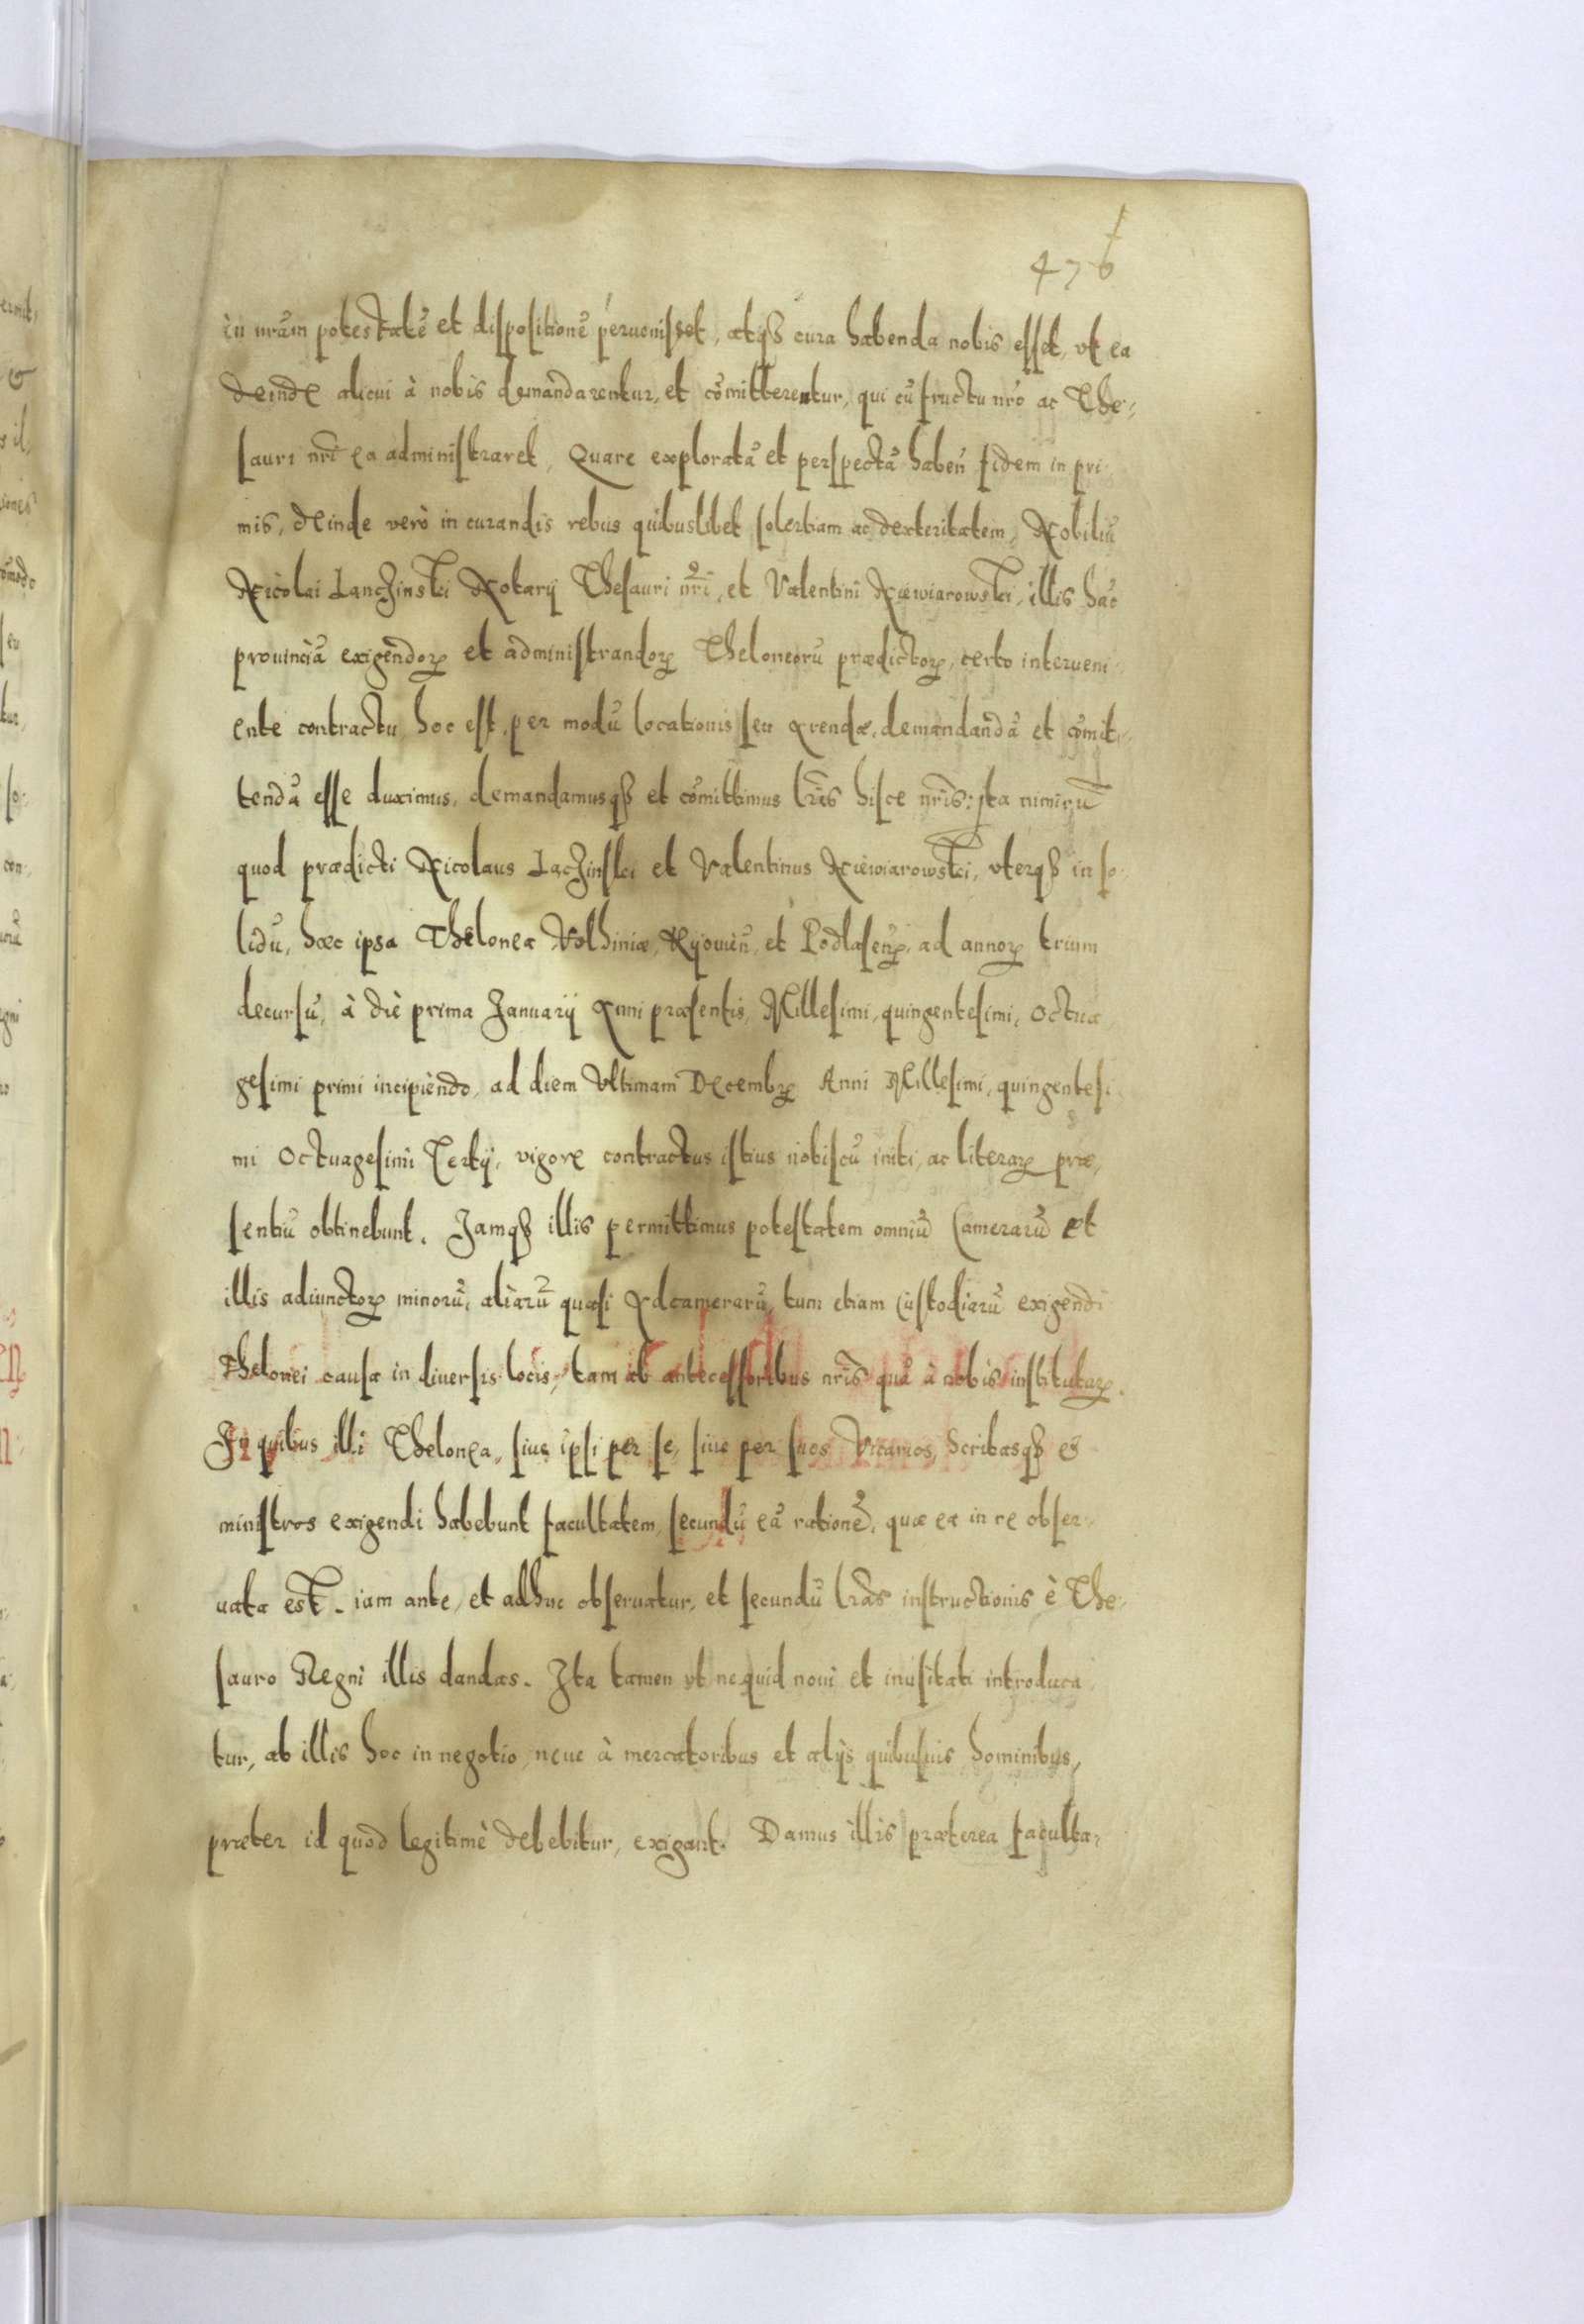 476
in nrãm potestatẽ et dispositionẽ peruenisset, atqȝ cura habenda nobis esset, vt ea
deinde alicui à nobis demandarentur, et cõmitterentur, qui cũ fructu nrõ ac The-
sauri nrĩ ea administraret, Quare exploratã et perspectã habeñ fidem in pri-
mis, deinde verò in curandis rebus quibuslibet solertiam ac dexteritatem, Nobiliũ
Nicolai Lanczinski Notarij Thesauri nrĩ, et Valentini Niewiarowski, illis hãc
prouinciã exigendoꝝ et administrandoꝝ Theloneorũ prædictoꝝ, certo interueni-
ente contractu hoc est, per modũ locationis seu Arendæ, demandandã et cõmit-
tendã esse duximus, demandamusqȝ et cõmittimus lrĩs hisce nrĩs: Ita nimirũ
quod prædicti Nicolaus Laczinski et Valentinus Niewiarowski, vterqȝ in so-
lidũ, hæc ipsa Thelonea Volhiniæ, Kyouieñ, et Podlaseñꝝ, ad annoꝝ trium
decursũ, à die prima Januarij Anni præsentis, Millesimi, quingentesimi, Octua-
gesimi primi incipiendo, ad diem Vltimam Decembꝝ Anni Millesimi, quingentesi-
mi Octuagesimi Tertij, vigore contractus istius nobiscũ initi, ac literaꝝ præ-
sentiũ obtinebunt. Jamqȝ illis permittimus potestatem omniũ Camerarũ et
illis adiunctoꝝ minorũ, aliarũ quasi Adcamerarũ, tum etiam Custodiarũ exigendi
Thelonei causa in diuersis locis, tam ab antecessoribus nrĩs quã à nobis institutaꝝ.
In quibus illi Thelonea, siue ipsi per se, siue per suos Vicarios, Scribasqȝ et
ministros exigendi habebunt facultatem, secundũ eã rationẽ, quæ ea in re obser-
uata est. iam ante, et adhuc obseruatur, et secundũ lrãs instructionis è The-
sauro Regni illis dandas. Ita tamen vt nequid noui et inusitati introduca-
tur, ab illis hoc in negotio, neue à mercatoribus et alijs quibusuis hominibus,
præter id quod legitimè debebitur, exigant. Damus illis præterea faculta-